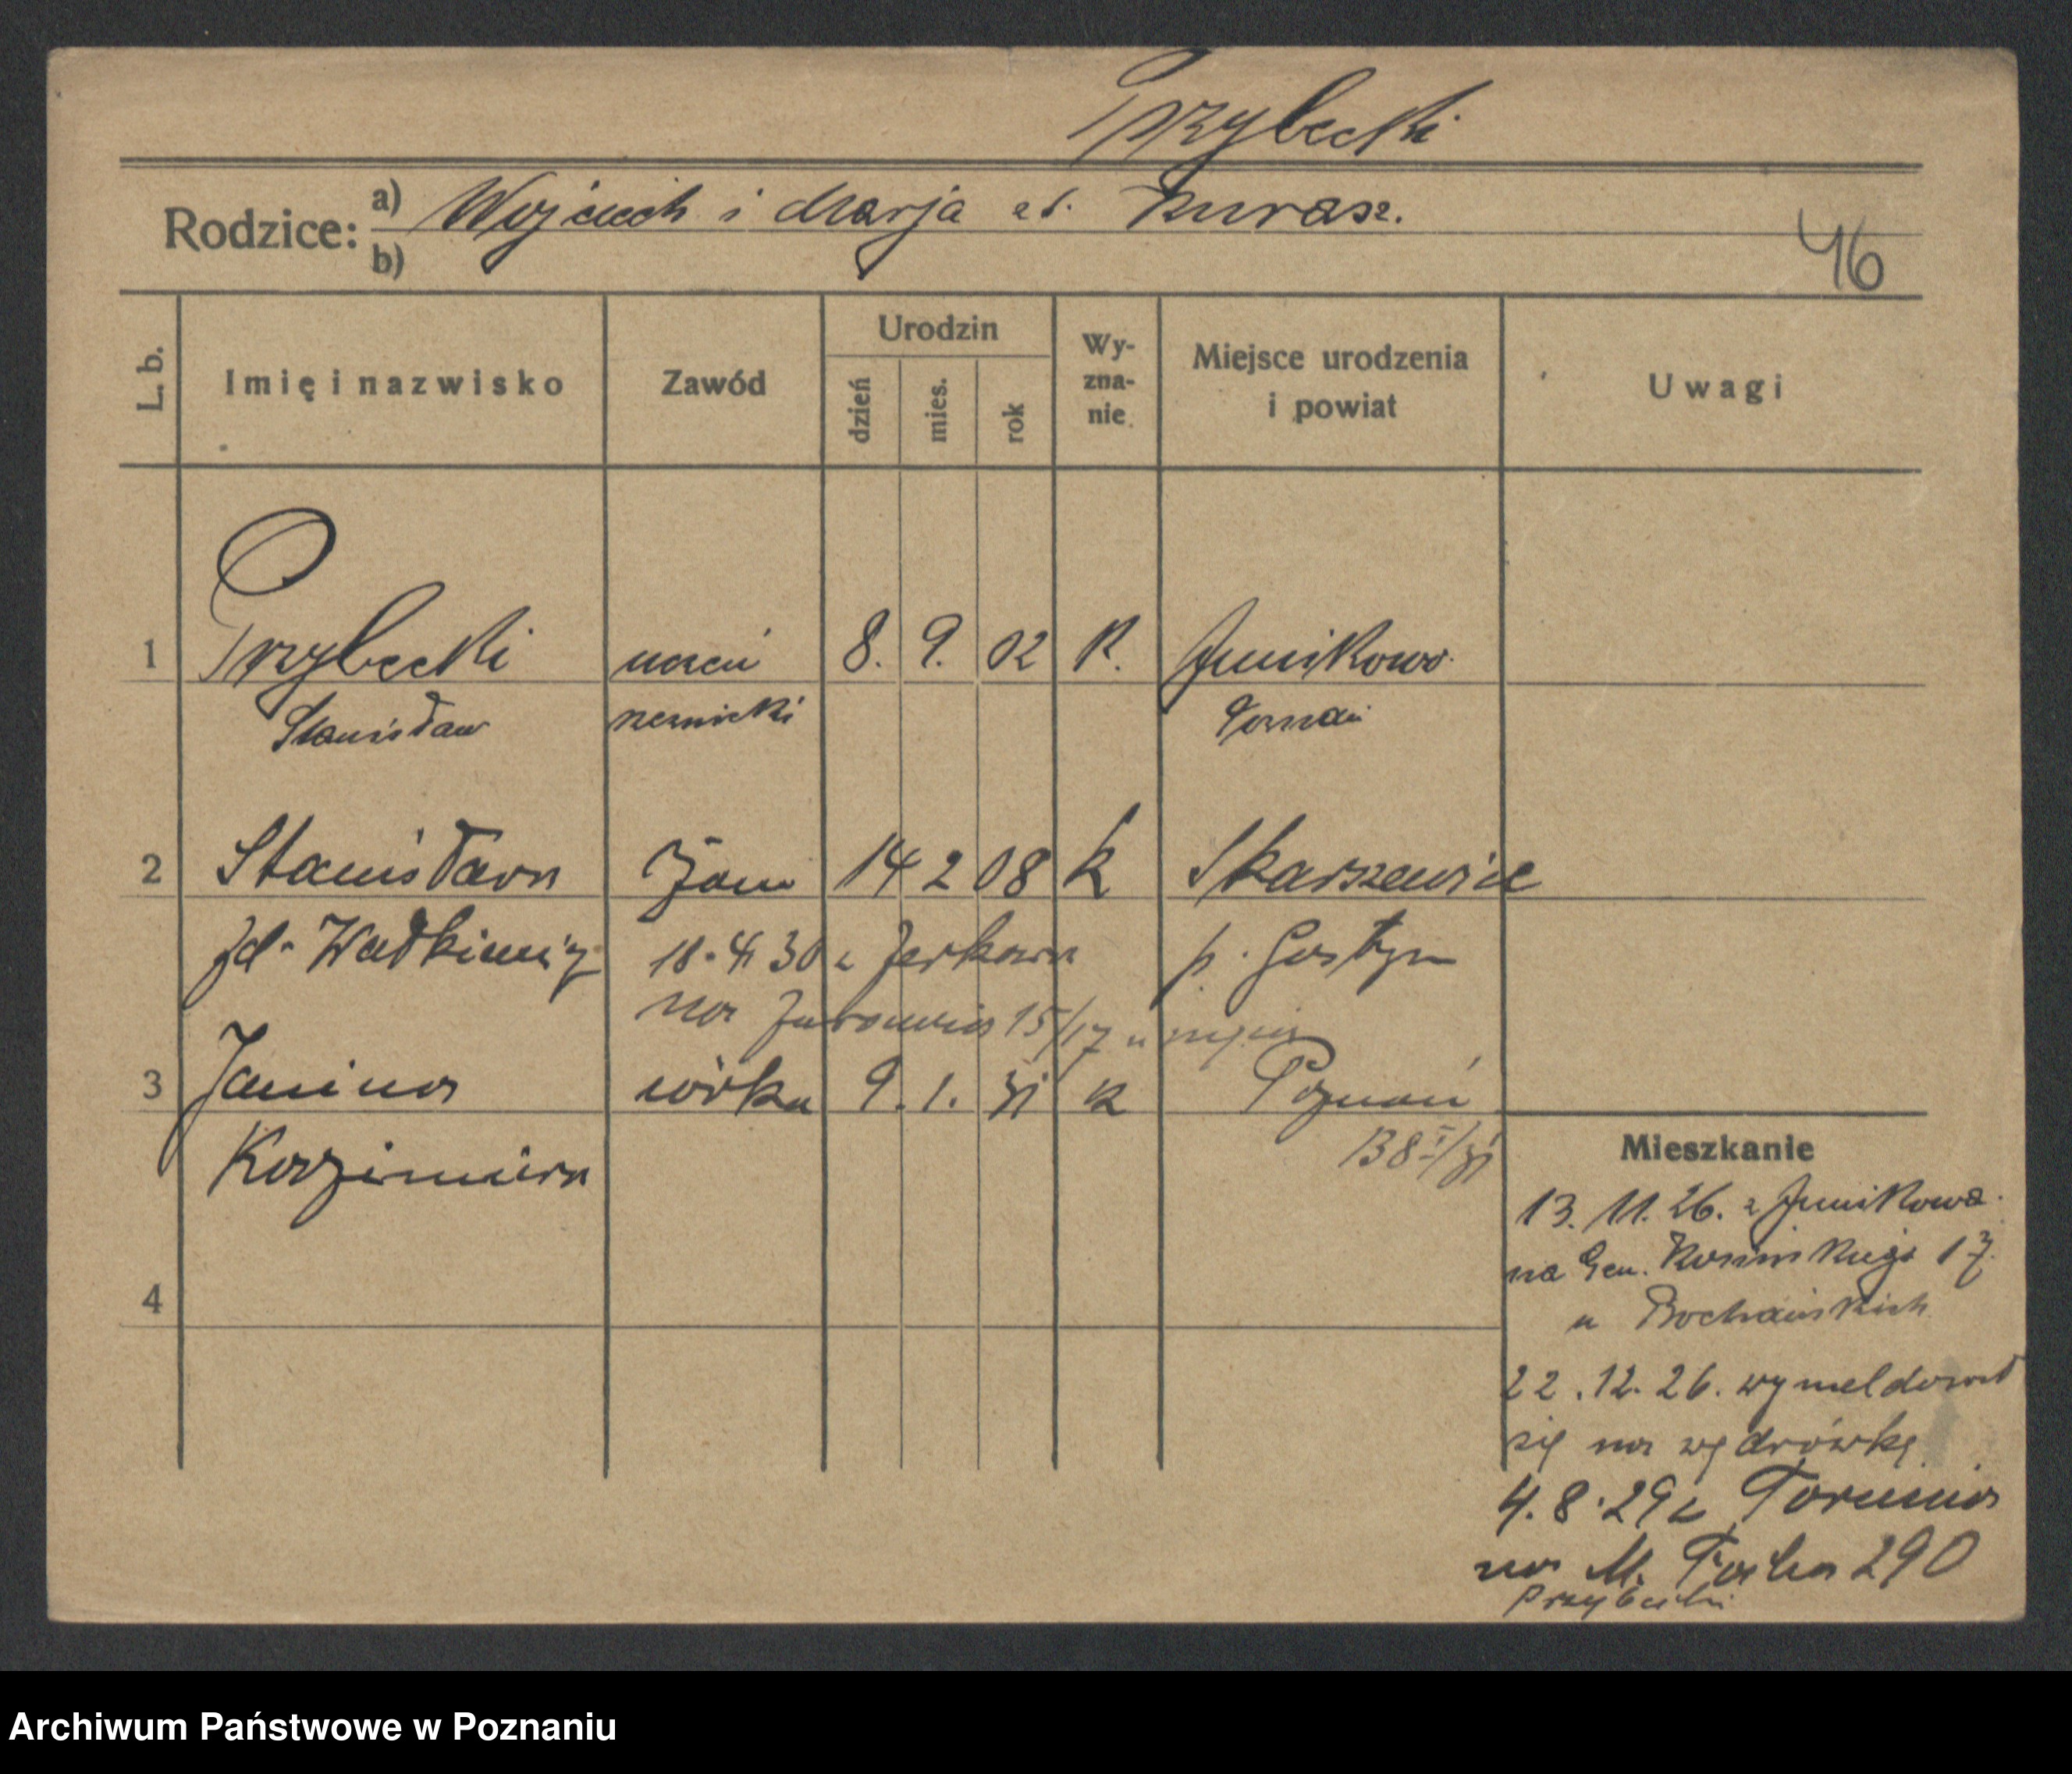 Przybecki
Rodzice: a) Wojciech i Marja zd. Kurasz.
b)
46
L. b.
Imię i nazwisko
Zawód
Urodzin
dzień
mies.
rok
Wy-
zna-
nie
Miejsce urodzenia
i powiat
Uwagi
1 Przybecki uczeń 8. 9. 02 K. Junikowo
Stanisław rzeźnicki Poznań
2 Stanisława żona 14 2 08 k Skarszewice
zd. Watkiewicz 18. 4 30 z Jerkowa p. Gostyn
na 15/17 u
3 Janina córka 9. 1. 31 k Poznań
Kazimiera 138 I/31
4
Mieszkanie
13. 11. 26. z Junikowa
na Gen. Kosińskiego 17.
u Bochańskich
22. 12. 26. wymeldował
się na wędrówkę
4. 8. 29 z Torunia
na M. Focha 290
Przybecki
Archiwum Państwowe w Poznaniu